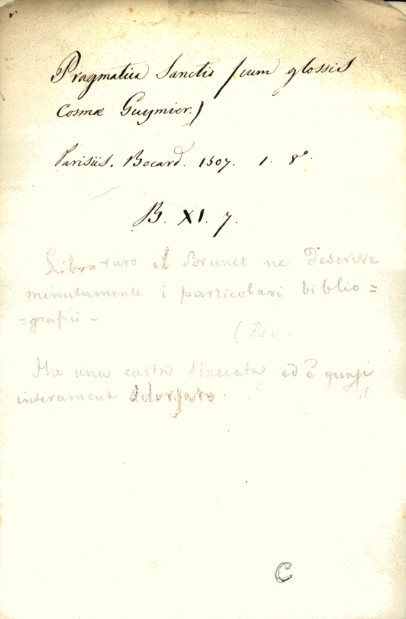 Pragmatica Sanctio (cum glossis
Cosmæ Guymier.)
Parisiis. Bocard. 1507. 1. 8º.
B. XI. 7.
Libro raro il Brunet ne descrive
minutamente i particolari biblio=
=grafici -
Ha una carta staccata ed è quasi
interament slorgato
C